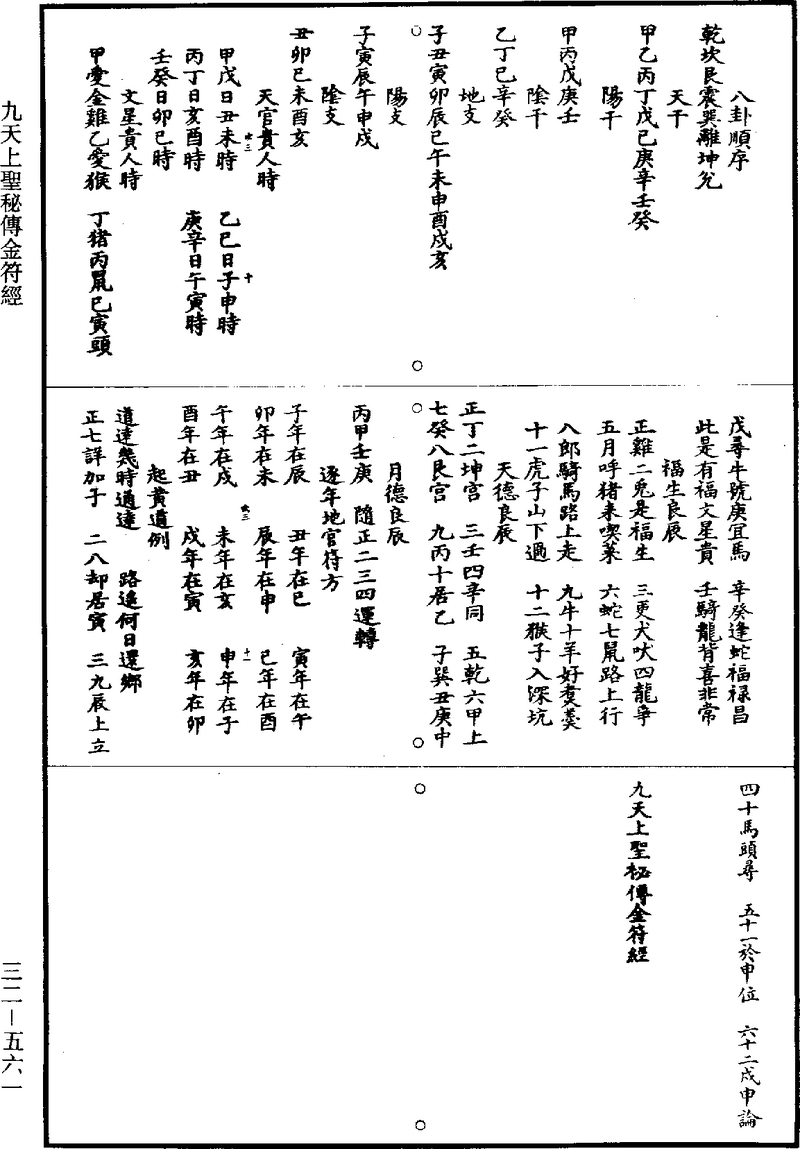 八卦順序
乾坎艮震巽離坤兌
天干
甲乙丙丁戊己庚辛壬癸
陽干
甲丙戊庚壬
陰干
乙丁己辛癸
地支
子丑寅卯辰巳午未申酉戌亥
陽支
子寅辰午申戌
陰支
丑卯巳未酉亥
天官貴人時
甲戊日丑未時 乙己日子申時
丙丁日亥酉時 庚辛日午寅時
壬癸日卯巳時
文星貴人時
甲愛金雞乙愛猴 丁猪丙鼠己寅頭
戊尋牛號庚宜馬 辛癸逢蛇福祿昌
此是有福文星貴 壬騎龍背喜非常
福生良辰
正雞二兎是福生 三更犬吠四龍爭
五月呼猪来喫菜 六蛇七鼠路上行
八郎騎馬路上走 九牛十羊好煑羮
十一虎子山下過 十二猴子入深坑
天德良辰
正丁二坤宮 三壬四辛同 五乾六甲上
七癸八艮宮 九丙十居乙 子巽丑庚中
月德良辰
丙甲壬庚 隨正二三四運轉
逐年地官符方
子年在辰 丑年在巳 寅年在午
卯年在未 辰年在申 巳年在酉
午年在戌 未年在亥 申年在子
酉年在丑 戌年在寅 亥年在卯
起黄道例
道逺幾時通達 路遙何日還鄉
正七詳加子 二八却居寅 三九辰上立
四十馬頭尋 五十一於申位 六十二戍申論
九天上聖秘傳金符經
九天上聖秘傳金符經
三二—五六一